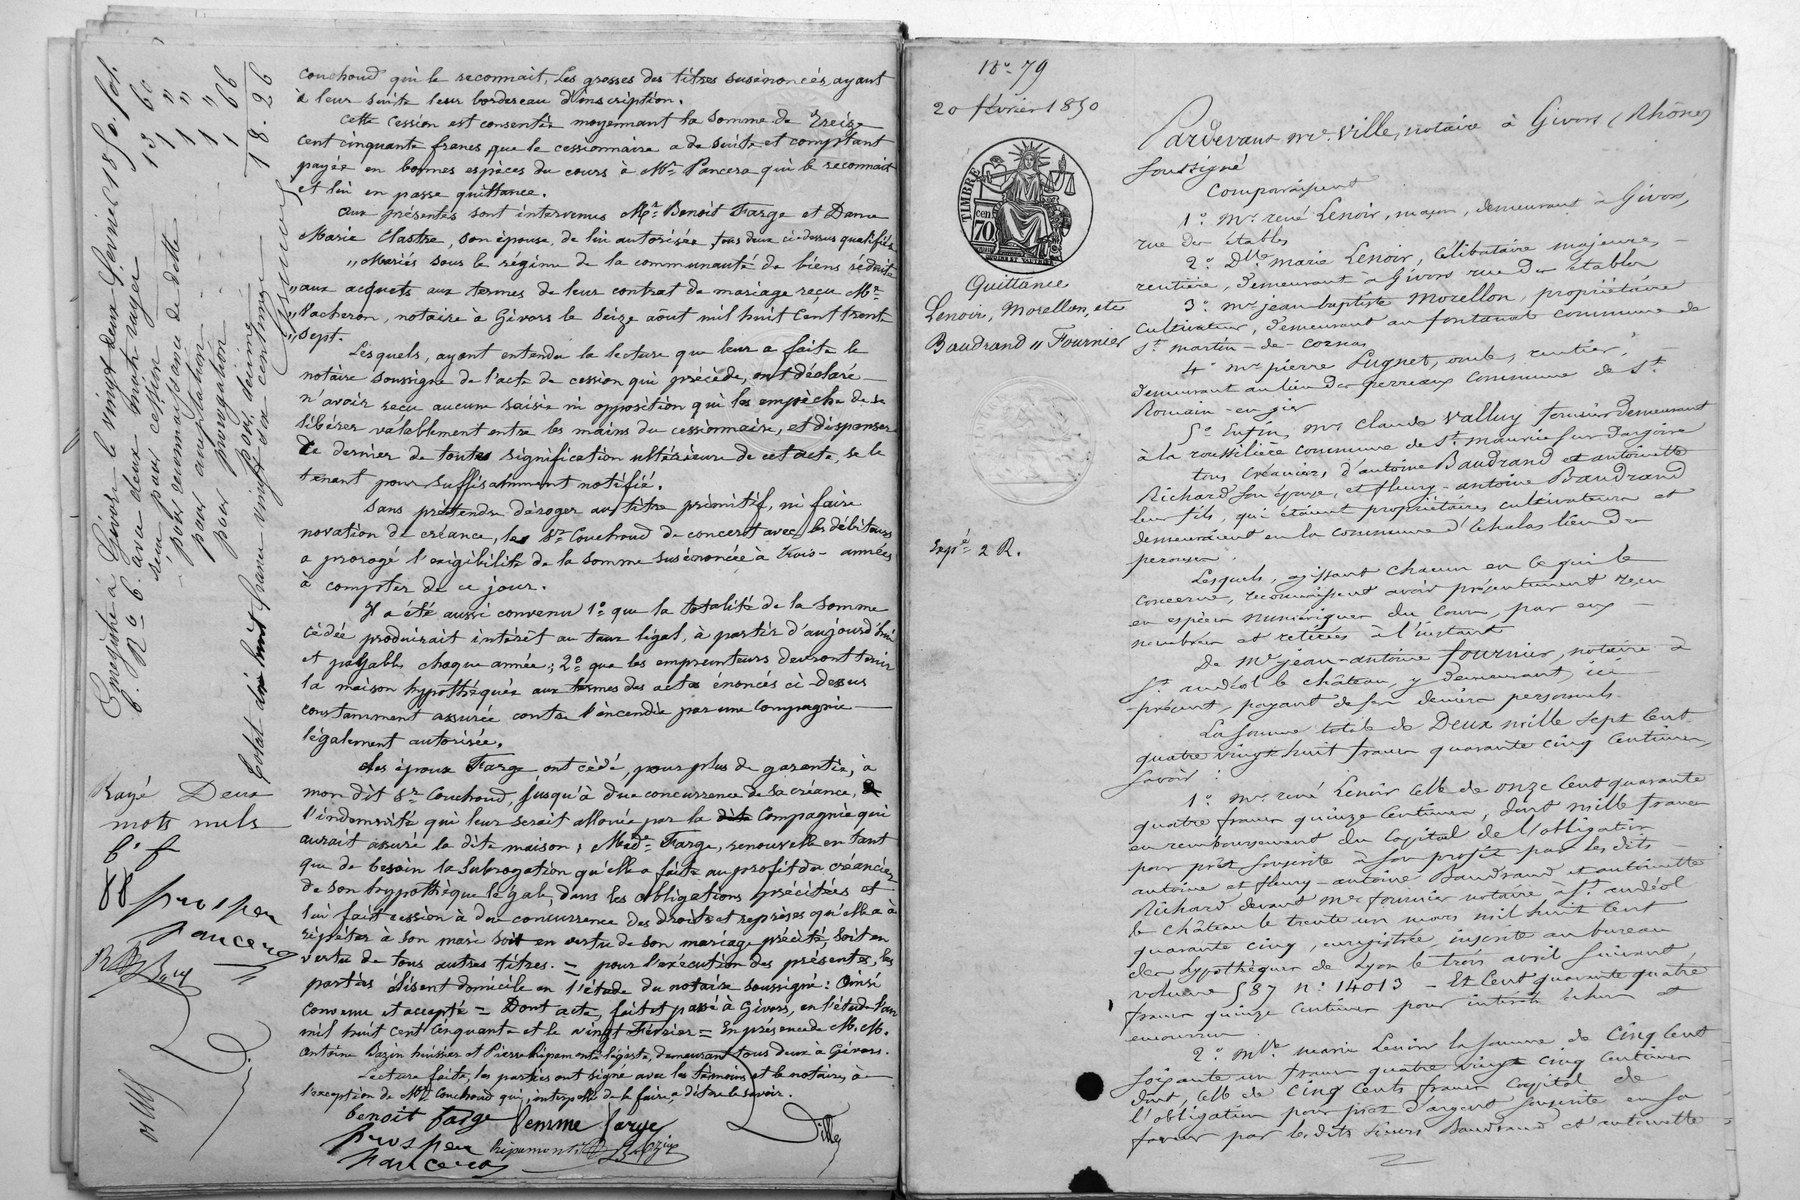 couchoud qui le reconnait, les grosses des titres susénoncés, ayant
à leur suite leur bordereau d'inscription.
Cette cession est consentie moyennant la somme de Treize
cent cinquante francs que le cessionnaire a de suite et comptant
payée en bonnes espèces du cours à Mr. Pancera qui le reconnait
et lui en passe quittance.
Aux présentes sont intervenus Mr. Benoit Farge et Dame
Marie Clastre, son épouse, de lui autorisée, tous deux ci-dessus qualifiés
„ Mariés sous le régime de la communauté de biens réduite
„ aux acquets aux termes de leur contrat de mariage reçu Mr.
„ Vacheron, notaire à Givors le seize août mil huit cent trente
„ sept.
Lesquels, ayant entendu la lecture que leur a faite le
notaire soussigné de l'acte de cession qui précède, ont déclaré
n'avoir reçu aucune saisie ni opposition qui les empêche de se
libérer valablement entre les mains du cessionnaire, et dispenser
ce dernier de toutes signification ultérieure de cet acte, se le
tenant pour suffisamment notifié.
Sans prétendre déroger au titre primitif, ni faire
novation de créance, les Sr. Couchoud de concert avec les débiteurs
a prorogé l'exigibilité de la somme susénoncée à trois années
à compter de ce jour.
Il a été aussi convenu 1° que la totalité de la somme
cédée produirait intérêt au taux légal, à partir d'aujourd'hui
et payable chaque année; 2° que les emprunteurs devront tenir
la maison hypothéquée aux termes des actes énoncés ci-dessus
constamment assurée contre l'incendie par une Compagnie
légalement autorisée.
Les époux Farge ont cédé, pour plus de garantie, à
mon dit Sr. Couchoud, jusqu'à due concurrence de sa créance,
l'indemnité qui leur serait allouée par la dite Compagnie qui
aurait assuré la dite maison; Made. Farge, renouvelle en tant
que de besoin la subrogation qu'elle a faite au profit du créancier
de son hypothèque légale, dans les obligations précitées et
lui fait cession à due concurrence des droits et reprises qu'elle a à
répéter à son mari soit en vertu de son mariage précité, soit en
vertu de tous autres titres. = pour l'exécution des présentes, les
parties élisent domicile en l'étude du notaire soussigné: Ainsi
convenu et accepté = Dont acte, fait et passé à Givors, en l'étude l'an
mil huit cent cinquante et le vingt Février = En présence de M.M.
Antoine Bazin huissier et Pierre Ripamonti légiste, demeurant tous deux à Givors.
Lecture faite, les parties ont signé avec les témoins et le notaire, à
l'exception de Mr. Couchoud qui, interpellé de le faire, a dit ne le savoir.
benoit farge femme farge
prosper Ripamonti Bazin
Pancera
Ville
Enregistré à Givors le vingt deux Février 1850. fol.
6. R° 6. avec deux mots rayés
sem pour cession 13 60
pour reconnaissance de dette 1 "
pour acceptation 1 "
pour prorogation 1 "
pour décime 1 66
Total dix huit francs vingt six centimes 18.26
Rayé Deux
mots nuls
b. f
prosper
pancera
N° 79
20 février 1850
TIMBRE
70 cen
Quittance
Lenoir, Morellon, etc
Baudrand „ Fournier
Expé. 2 R.
Pardevant me. Ville, notaire à Givors (Rhône)
soussigné
Comparaissent
1° mr. rené Lenoir, maçon, demeurant à Givors,
rue des étables
2° Dlle. marie Lenoir, célibataire majeure,
rentière, demeurant à Givors rue des étables
3° mr. jean-baptiste Morellon, propriétaire
cultivateur, demeurant au fontanat commune de
St. martin-de-cornas
4° mr. pierre Lugnet, rentier,
demeurant au lieu des perreaux commune de St.
Romain-en-gier
5° Enfin, mr. Claude Valluy demeurant
à la roussilière commune de St. maurice sur dargoire
tous créanciers d'antoine Baudrand et antoinette
Richard son épouse, et fleury-antoine Baudrand
leur fils, qui étaient propriétaires cultivateurs et
demeuraient en la commune d'Echalas lieu du
Lesquels, agissant chacun en ce qui le
concerne, reconnaissent avoir présentement reçu
en espèces numériques du cours, par eux
nombrées et retirées à l'instant
De me. jean-antoine fournier, notaire à
St. andéol le château, y demeurant, ici
présent, payant de ses deniers personnels
La somme totale de Deux mille sept cent
quatre vingt huit francs quarante cinq centimes,
savoir :
1° mr. rené Lenoir celle de onze cent quarante
quatre francs quinze centimes, dont mille francs
en remboursement du capital de l'obligation
pour prêt souscrite à son profit par les dits
antoine et fleury-antoine Baudrand et antoinette
Richard devant me. fournier notaire à St. andéol
le château le trente un mars mil huit cent
quarante cinq, enregistrée, inscrite au bureau
des hypothèques de Lyon le trois avril suivant
volume 587 n° 14013 - Et cent quarante quatre
francs quinze centimes pour intérêts échus et
encourus
2° mlle. marie Lenoir la somme de cinq cent
soixante un francs quatre vingt cinq centimes
dont, celle de cinq cents francs capital de
l'obligation pour prêt d'argent souscrite en sa
faveur par les dits sieurs Baudrand et antoinette